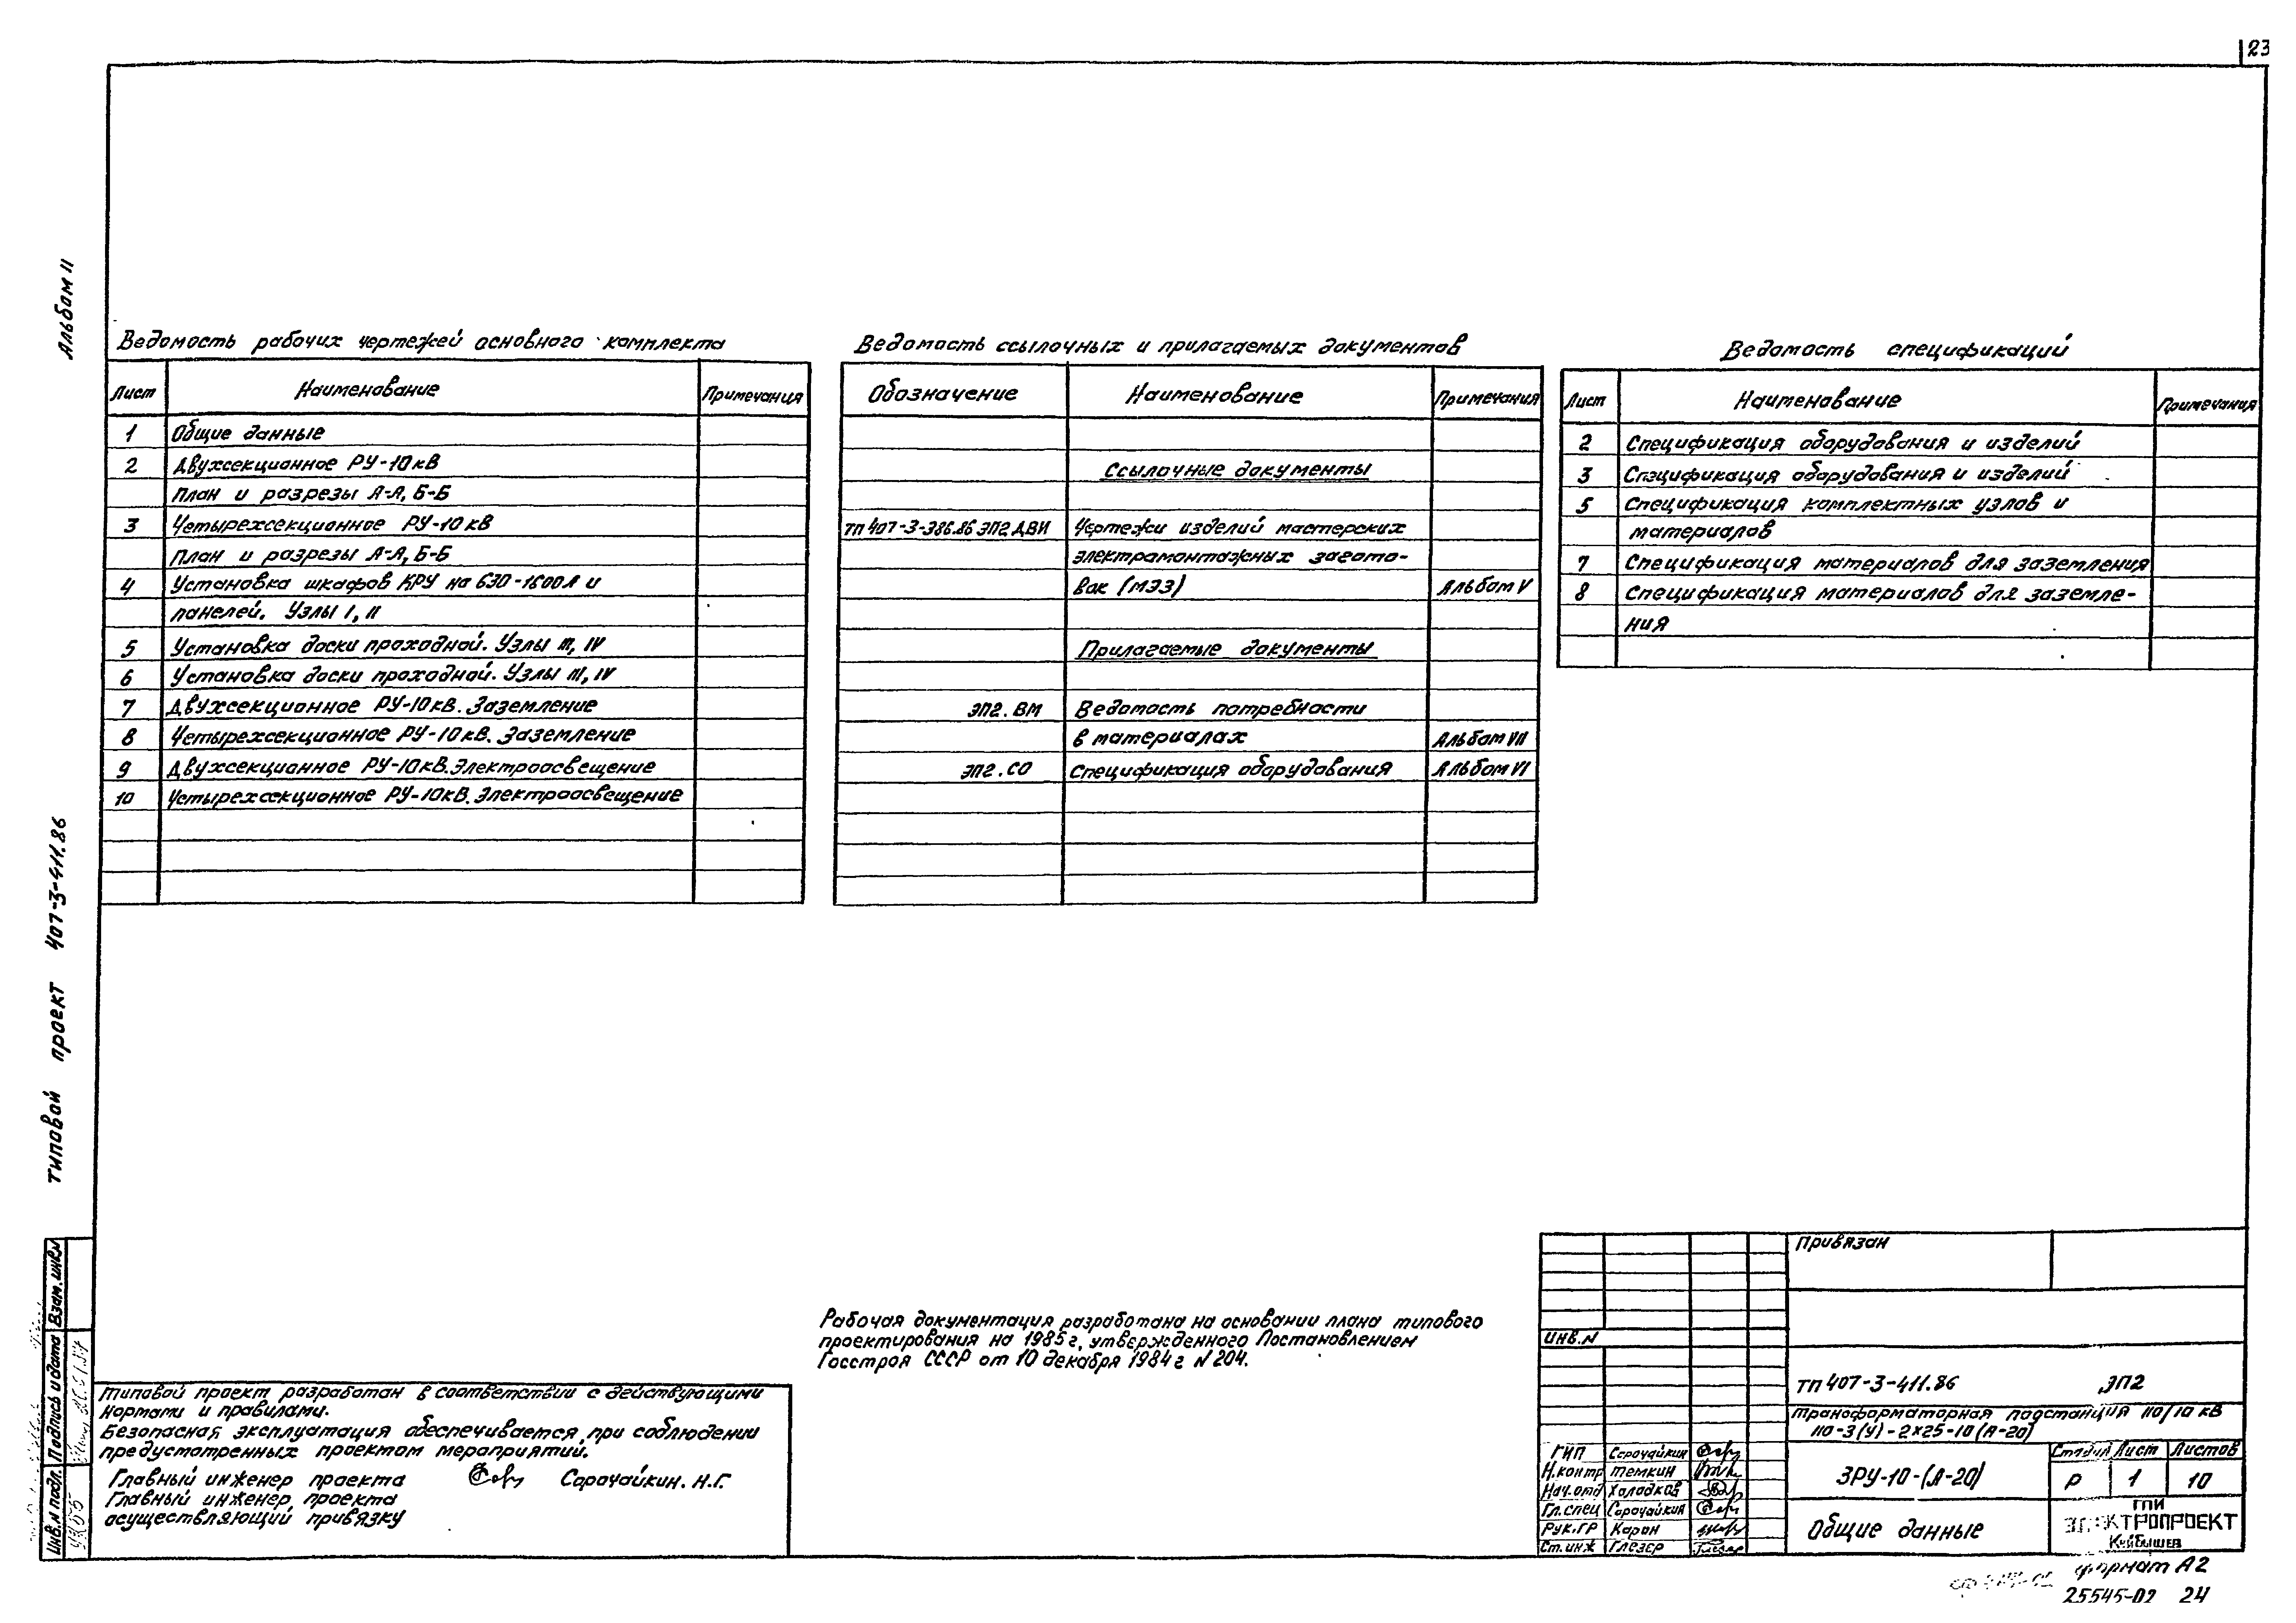 23
Альбом II
типовой проект 407-3-411.86
Ведомость рабочих чертежей основного комплекта
Лист Наименование Примечания
1 Общие данные
2 Двухсекционное РУ-10кВ
План и разрезы А-А, Б-Б
3 Четырехсекционное РУ-10кВ
План и разрезы А-А, Б-Б
4 Установка шкафов КРУ на 630-1600А и
панелей. Узлы I, II
5 Установка доски проходной. Узлы III, IV
6 Установка доски проходной. Узлы III, IV
7 Двухсекционное РУ-10кВ. Заземление
8 Четырехсекционное РУ-10кВ. Заземление
9 Двухсекционное РУ-10кВ. Электроосвещение
10 Четырехсекционное РУ-10кВ. Электроосвещение
Ведомость ссылочных и прилагаемых документов
Обозначение Наименование Примечания
Ссылочные документы
ТП 407-3-386.86 ЭП2.ДВИ Чертежи изделий мастерских
электромонтажных загото-
вок (МЭЗ) Альбом V
Прилагаемые документы
ЭП2.ВМ Ведомость потребности
в материалах Альбом VII
ЭП2.СО Спецификация оборудования Альбом VI
Ведомость спецификаций
Лист Наименование Примечания
2 Спецификация оборудования и изделий
3 Спецификация оборудования и изделий
5 Спецификация комплектных узлов и
материалов
7 Спецификация материалов для заземления
8 Спецификация материалов для заземле-
ния
Рабочая документация разработана на основании плана типового
проектирования на 1985г, утвержденного Постановлением
Госстроя СССР от 10 декабря 1984г N 204.
Типовой проект разработан в соответствии с действующими
нормами и правилами.
Безопасная эксплуатация обеспечивается, при соблюдении
предусмотренных проектом мероприятий.
Главный инженер проекта Сорочайкин. Н.Г.
Главный инженер, проекта
осуществляющий привязку
Инв.N подл. Подпись и дата Взам.инв.N
Привязан
Инв.N
ТП 407-3-411.86 ЭП2
Трансформаторная подстанция 110/10 кВ
110-3(У)-2×25-10(А-20)
ГИП Сорочайкин
Н.контр Темкин
Нач.отд Холодков
Гл.спец Сорочайкин
Рук.гр Коган
Ст.инж Глезер
ЗРУ-10-(А-20)
Стадия Лист Листов
Р 1 10
Общие данные
ГПИ
ЭЛЕКТРОПРОЕКТ
Куйбышев
Формат А2
25545-02 24